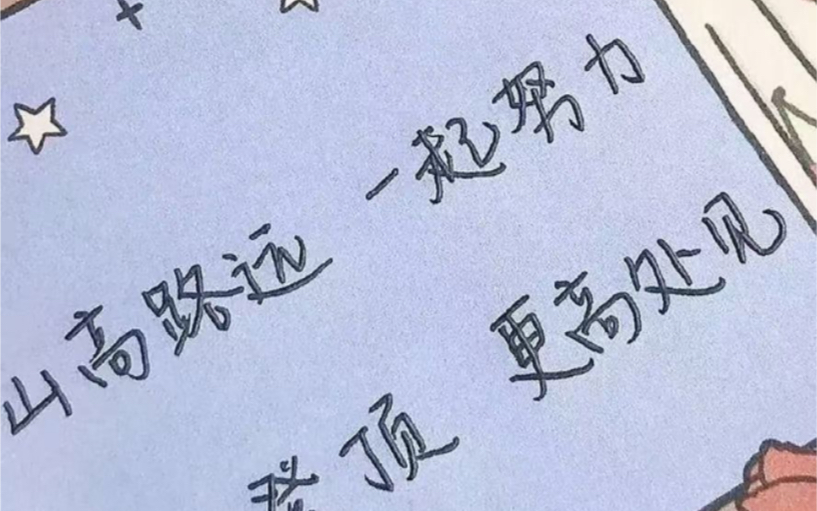 山高路远 一起努力
登顶 更高处见